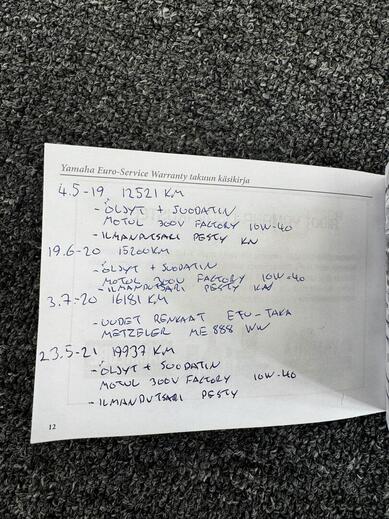 Yamaha Euro-Service Warranty takuun käsikirja
4.5-19 12521 KM
- ÖLJYT + SUODATIN
MOTUL 300V FACTORY 10W-40
- ILMANPUTSARI PESTY KN
19.6-20 15200KM
- ÖLJYT + SUODATIN
MOTUL 300V FACTORY 10W-40
- ILMANPUTSARI PESTY KN
3.7-20 16181 KM
- UUDET RENKAAT ETU-TAKA
METZELER ME888 WW
23.5-21 19937 KM
- ÖLJYT + SUODATIN
MOTUL 300V FACTORY 10W-40
- ILMANPUTSARI PESTY
12